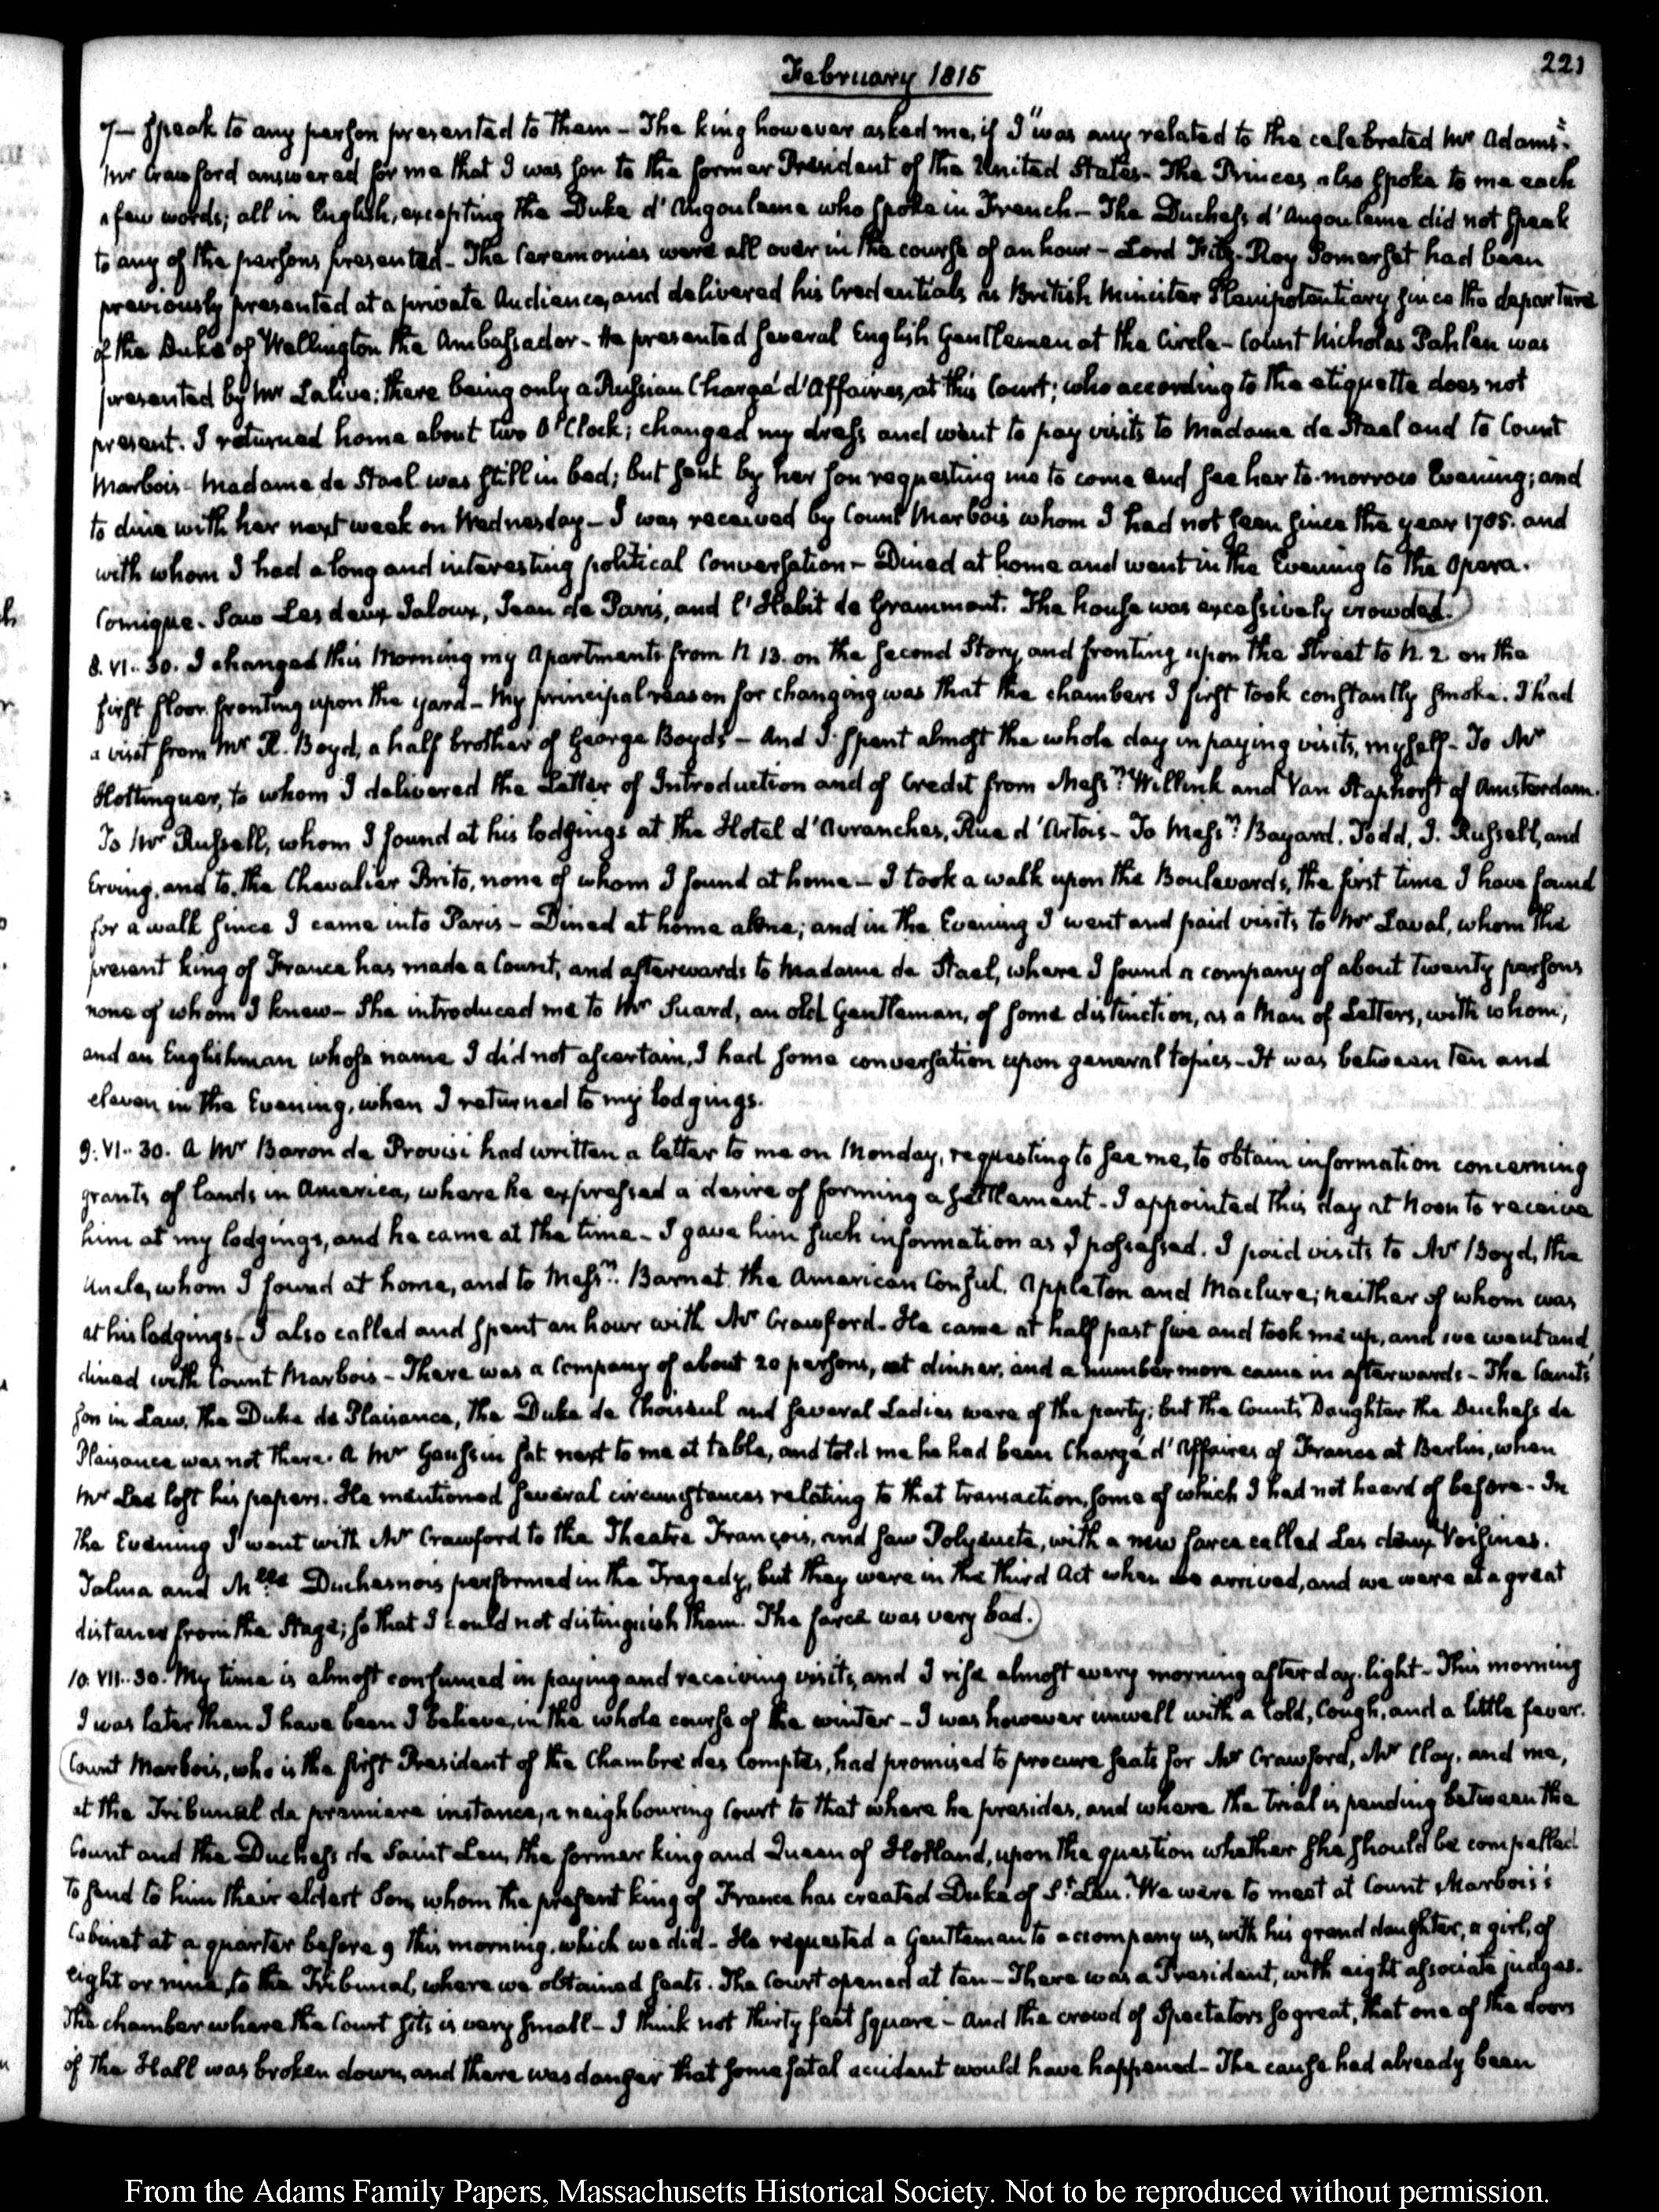 February 1815
221
7— speak to any person presented to them — The king however asked me, if I "was any related to the celebrated Mr Adams".
Mr Crawford answered for me that I was son to the former President of the United States — The Princes also spoke to me each
a few words; all in English, excepting the Duke d'Angouleme who spoke in French — The Duchess d'Angouleme did not speak
to any of the persons presented — The Ceremonies were all over in the course of an hour — Lord Fitz-Roy Somerset had been
previously presented at a private Audience, and delivered his Credentials as British Minister Plenipotentiary since the departure
of the Duke of Wellington the Ambassador — He presented several English Gentlemen at the Circle — Count Nicholas Pahlen was
presented by Mr Lalive: there being only a Russian Chargé d'Affaires, at this Court; who according to the etiquette does not
present. I returned home about two O'Clock; changed my dress and went to pay visits to Madame de Stael and to Count
Marbois — Madame de Stael was still in bed; but sent by her son requesting me to come and see her to-morrow Evening; and
to dine with her next week on Wednesday — I was received by Count Marbois whom I had not seen since the year 1785. and
with whom I had a long and interesting political Conversation — Dined at home and went in the Evening to the Opera.
Comique. Saw Les deux Jaloux, Jean de Paris, and l'Habit de Grammont. The house was excessively crowded.)
8. VI..30. I changed this Morning my Apartments from N 13. on the second Story, and fronting upon the Street to N. 2. on the
first floor fronting upon the yard — My principal reason for changing was that the chambers I first took constantly smoke. I had
a visit from Mr R. Boyd, a half brother of George Boyd's — And I spent almost the whole day in paying visits, myself — To Mr
Hottinguer, to whom I delivered the Letter of Introduction and of Credit from Messrs Willink and Van Staphorst of Amsterdam.
To Mr Russell, whom I found at his lodgings at the Hotel d'Avranches, Rue d'Artois — To Messrs Bayard, Todd, J. Russell, and
Erving, and to the Chevalier Brito, none of whom I found at home — I took a walk upon the Boulevards, the first time I have found
for a walk since I came into Paris — Dined at home alone; and in the Evening I went and paid visits to Mr Laval, whom the
present king of France has made a Count, and afterwards to Madame de Stael, where I found a company of about twenty persons
none of whom I knew — She introduced me to Mr Suard, an old Gentleman, of some distinction, as a Man of Letters, with whom,
and an Englishman whose name I did not ascertain, I had some conversation upon general topics — It was between ten and
eleven in the Evening, when I returned to my lodgings.
9. VI..30. A Mr Baron de Provisi had written a letter to me on Monday, requesting to see me, to obtain information concerning
grants of lands in America, where he expressed a desire of forming a settlement — I appointed this day at Noon to receive
him at my lodgings, and he came at the time — I gave him such information as I possessed. I paid visits to Mr Boyd, the
Uncle, whom I found at home, and to Messrs Barnet, the American Consul, Appleton and Maclure; neither of whom was
at his lodgings — (I also called and spent an hour with Mr Crawford — He came at half past five and took me up, and we went and
dined with Count Marbois — There was a Company of about 20 persons, at dinner, and a number more came in afterwards — The Count's
son in Law, the Duke de Plaisance, the Duke de Choiseul and several Ladies were of the party; but the Count's Daughter the Duchess de
Plaisance was not there. A Mr Gaussin sat next to me at table, and told me he had been Chargé d'Affaires of France at Berlin, when
Mr Lee lost his papers. He mentioned several circumstances relating to that transaction, some of which I had not heard of before — In
the Evening I went with Mr Crawford to the Theatre François, and saw Polyeucte, with a new farce called Les deux Voisines.
Talma and Mlle Duchesnois performed in the Tragedy, but they were in the third Act when we arrived, and we were at a great
distance from the Stage; so that I could not distinguish them. The farce was very bad.)
10. VII..30. My time is almost consumed in paying and receiving visits, and I rise almost every morning after day-light — This morning
I was later than I have been I believe, in the whole course of the winter — I was however unwell with a Cold, Cough, and a little fever.
(Count Marbois, who is the first President of the Chambre des Comptes, had promised to procure seats for Mr Crawford, Mr Clay, and me,
at the Tribunal de premiere instance, a neighbouring Court to that where he presides, and where the trial is pending between the
Count and the Duchess de Saint Leu, the former king and Queen of Holland, upon the question whether she should be compelled
to send to him their eldest Son, whom the present king of France has created Duke of St Leu. We were to meet at Count Marbois's
Cabinet at a quarter before 9 this morning, which we did — He requested a Gentleman to accompany us, with his grand daughter, a girl, of
eight or nine, to the Tribunal, where we obtained seats. The Court opened at ten — There was a President, with eight associate judges.
The chamber where the Court sits is very small — I think not thirty feet square — And the crowd of Spectators so great, that one of the doors
of the Hall was broken down, and there was danger that some fatal accident would have happened — The cause had already been
From the Adams Family Papers, Massachusetts Historical Society. Not to be reproduced without permission.